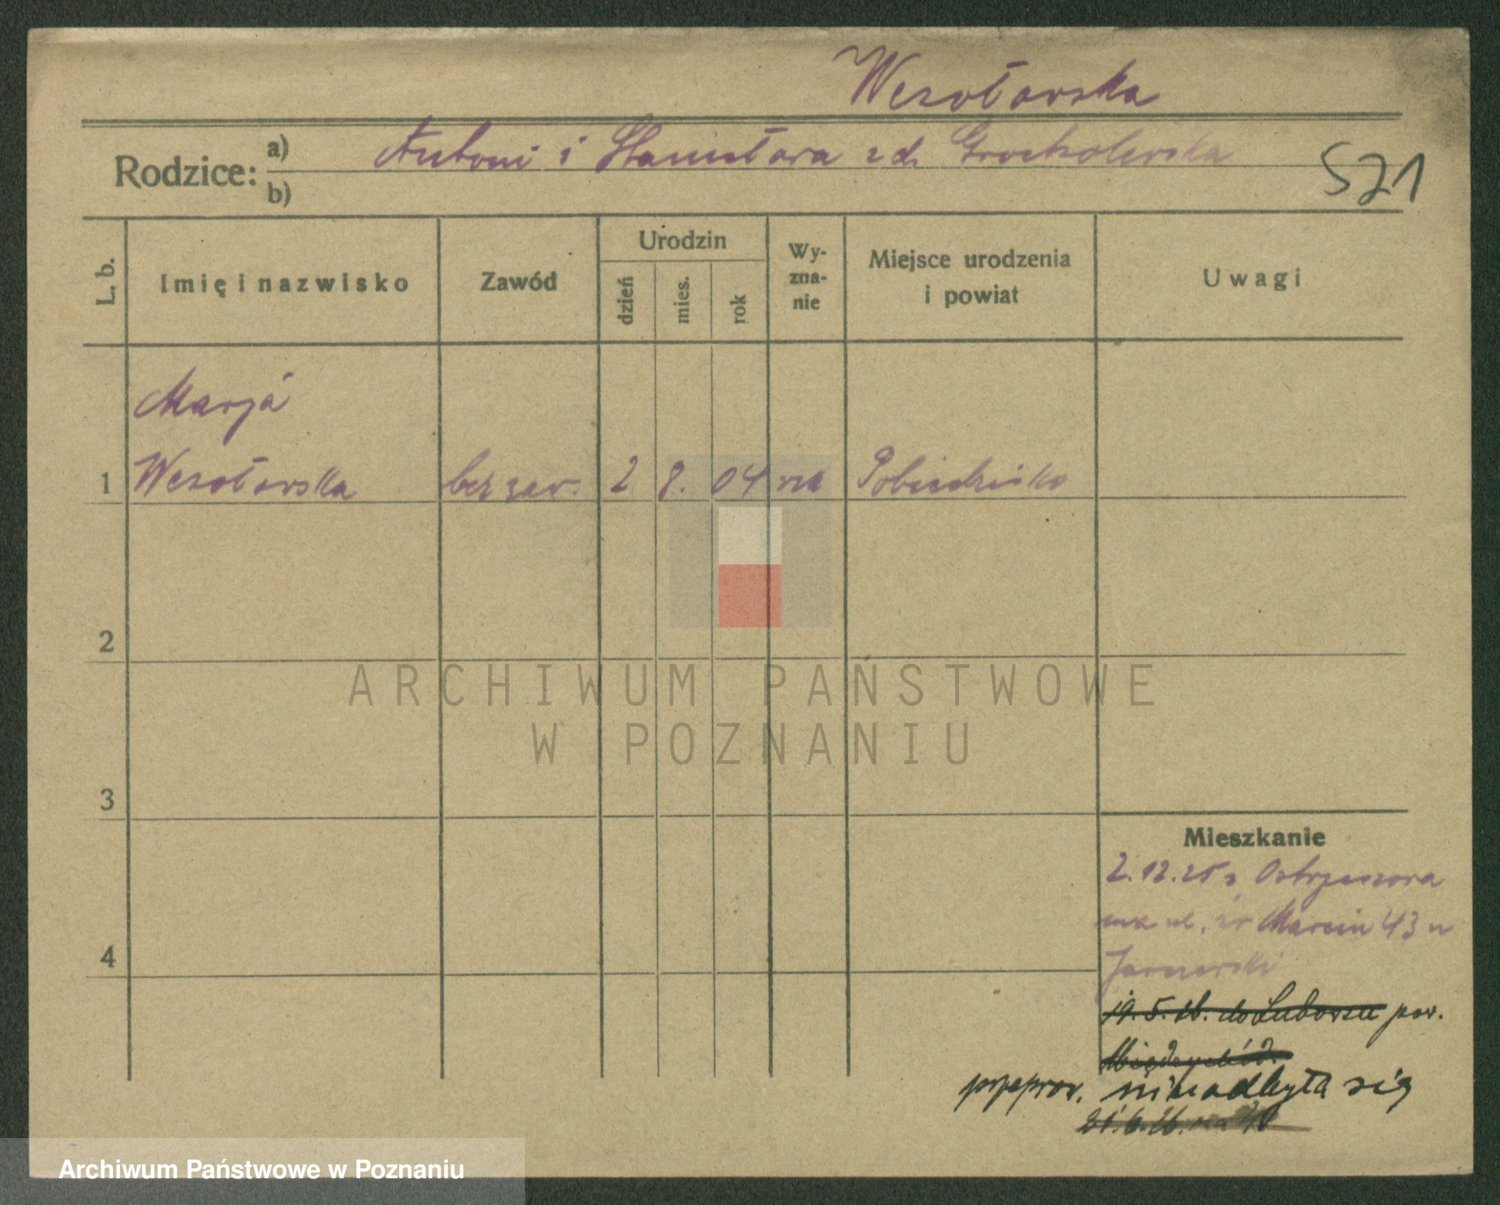 Wesołowska
Rodzice: a) Antoni i Stanisława z d. Grocholewska
b)
521
L. b.
Imię i nazwisko
Zawód
Urodzin
dzień
mies.
rok
Wy-
zna-
nie
Miejsce urodzenia
i powiat
Uwagi
Marja
1 Wesołowska bez zaw. 2 8. 04 Pobiedziska
2
3
4
ARCHIWUM PAŃSTWOWE
W POZNANIU
Mieszkanie
2.12.25 z Ostrzeszowa
ul. św Marcin 43 u
19.5.26. do pow.
Międzychód.
przeprow. nie odbyła się
21.6.26.
Archiwum Państwowe w Poznaniu